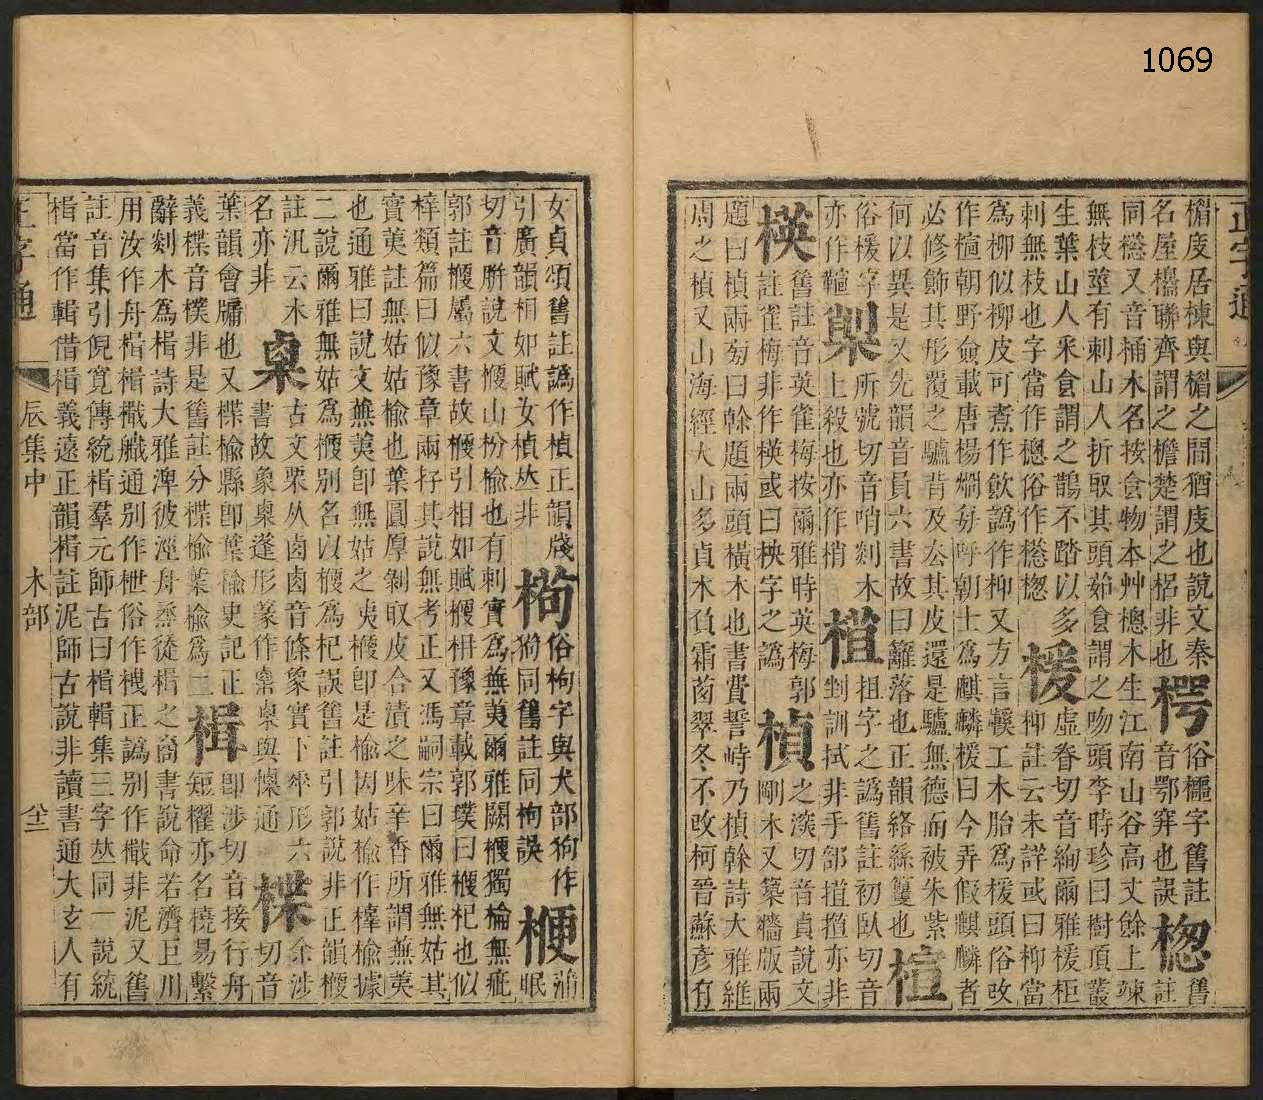 1069
正字通
楣庋居棟與楣之間猶庋也說文秦
名屋櫋聯齊謂之檐楚謂之梠非也
楞
俗櫺字舊註
音鄂穽也誤
楤
舊註
同㮔又音桶木名按食物本艸楤木生江南山谷高丈餘上竦
無枝莖有刺山人折取其頭茹食謂之吻頭李時珍曰樹頂叢
生葉山人采食謂之鵲不踏以多
刺無枝也字當作楤俗作㮔楤
楥
虛眷切音絢爾雅楥柜
柳註云未詳或曰柳當
爲柳似柳皮可煮作飲譌作柳又方言轅工木胎爲楥頭俗改
作楦朝野僉載唐楊烱每呼朝士爲麒麟楥曰今弄假麒麟者
必修飾其形覆之驢背及去其皮還是驢無德而被朱紫
何以異是又先韻音員六書故曰籬落也正韻絡絲籰也
楦
俗楥字
亦作韗
㮶
所號切音哨剡木
上殺也亦作梢
楂
俗担字之譌舊註初臥切音
剉訓拭非手部担擅亦非
楧
舊註音英雀梅按爾雅時英梅郭
註雀梅非作楧或曰柍字之譌
楨
之深切音貞說文
剛木又築牆版兩
題曰楨兩旁曰榦題兩頭橫木也書費誓峙乃楨榦詩大雅維
周之楨又山海經大山多貞木負霜茵翠冬不改柯晉蘇彦有
女貞頌舊註譌作楨正韻牋
引廣韻相如賦女楨𠀤非
㺃
俗枸字與犬部狗作
㺃同舊註同枸誤
楩
蒲眠
切音騈說文楩山枌榆也有刺實爲蕪荑爾雅闕楩獨棆無疵
郭註楩屬六書故楩引相如賦楩枏豫章載郭璞曰楩杞也似
梓類篇曰似豫章兩存其說無考正又馮嗣宗曰爾雅無姑其
實荑註無姑姑榆也葉圓厚剝取皮合漬之味辛香所謂蕪荑
也通雅曰說文蕪荑卽無姑之荑楩卽是榆因姑榆作樟榆據
二說爾雅無姑爲楩别名以楩爲杞誤舊註引郭說非正韻楩
註汎云木
名亦非
㮚
古文栗从卤卤音條象實下垂形六
書故象㮚蓬形篆作㮚㮚與慄通
楪
余涉
切音
葉韻會牖也又楪榆縣卽葉榆史記正
義楪音樸非是舊註分楪榆葉榆爲二
楫
卽涉切音接行舟
短櫂亦名橈易繫
辭剡木爲楫詩大雅淠彼涇舟烝徒楫之商書說命若濟巨川
用汝作舟楫楫檝艥通别作枻俗作㭜正譌别作檝非泥又舊
註音集引倪寬傳統楫羣元師古曰楫輯集三字𠀤同一說統
楫當作輯借楫義遠正韻楫註泥師古說非讀書通太玄人有
正字通
辰集中
木部